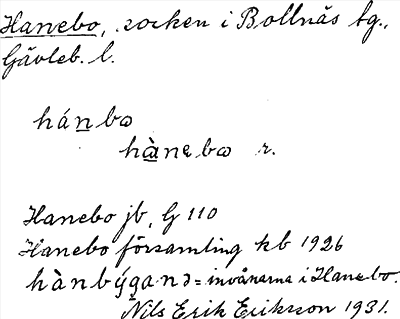 Hanebo, socken i Bollnäs tg.,
Gävleb. l.
hánbo
hànebo r.
Hanebo jb, G 110
Hanebo församling kb 1926
hànbýgano = invånarna i Hanebo.
Nils Erik Eriksson 1931.